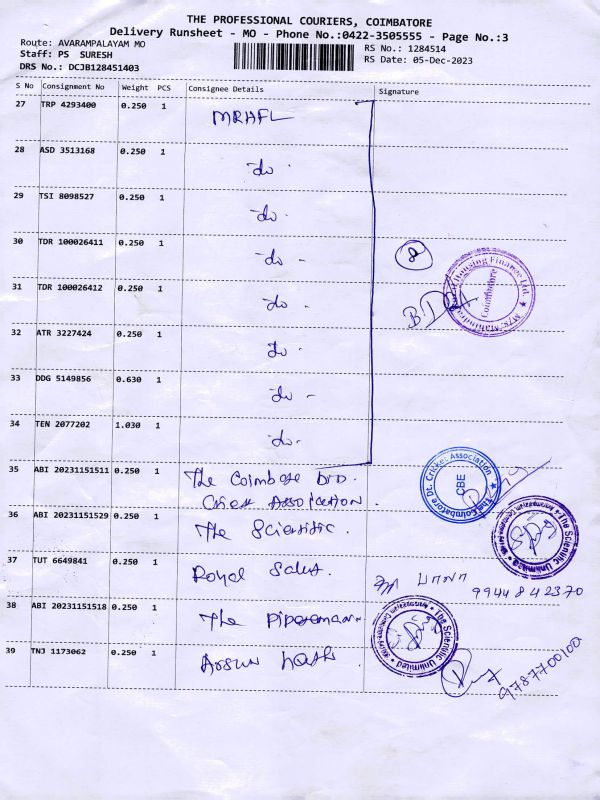 THE PROFESSIONAL COURIERS, COIMBATORE
Delivery Runsheet - MO - Phone No.:0422-3505555 - Page No.:3
Route: AVARAMPALAYAM MO
Staff: PS SURESH
DRS No.: DCJB128451403
RS No.: 1284514
RS Date: 05-Dec-2023
S No Consignment No Weight PCS Consignee Details Signature
27 TRP 4293400 0.250 1 MRHFL
28 ASD 3513168 0.250 1 -do-
29 TSI 8098527 0.250 1 -do-
30 TDR 100026411 0.250 1 -do-
31 TDR 100026412 0.250 1 -do-
32 ATR 3227424 0.250 1 -do-
33 DDG 5149856 0.630 1 -do-
34 TEN 2077202 1.030 1 -do-
Housing Finance Ltd.
Coimbatore
35 ABI 20231151511 0.250 1 The
The Coimbatore Dt. Cricket Association
CBE
36 ABI 20231151529 0.250 1 The Scientific.
The Scientific Unlimited
37 TUT 6649841 0.250 1 Royal
9944842370
38 ABI 20231151518 0.250 1 The
The Scientific Unlimited
39 TNJ 1173062 0.250 1
9787700100